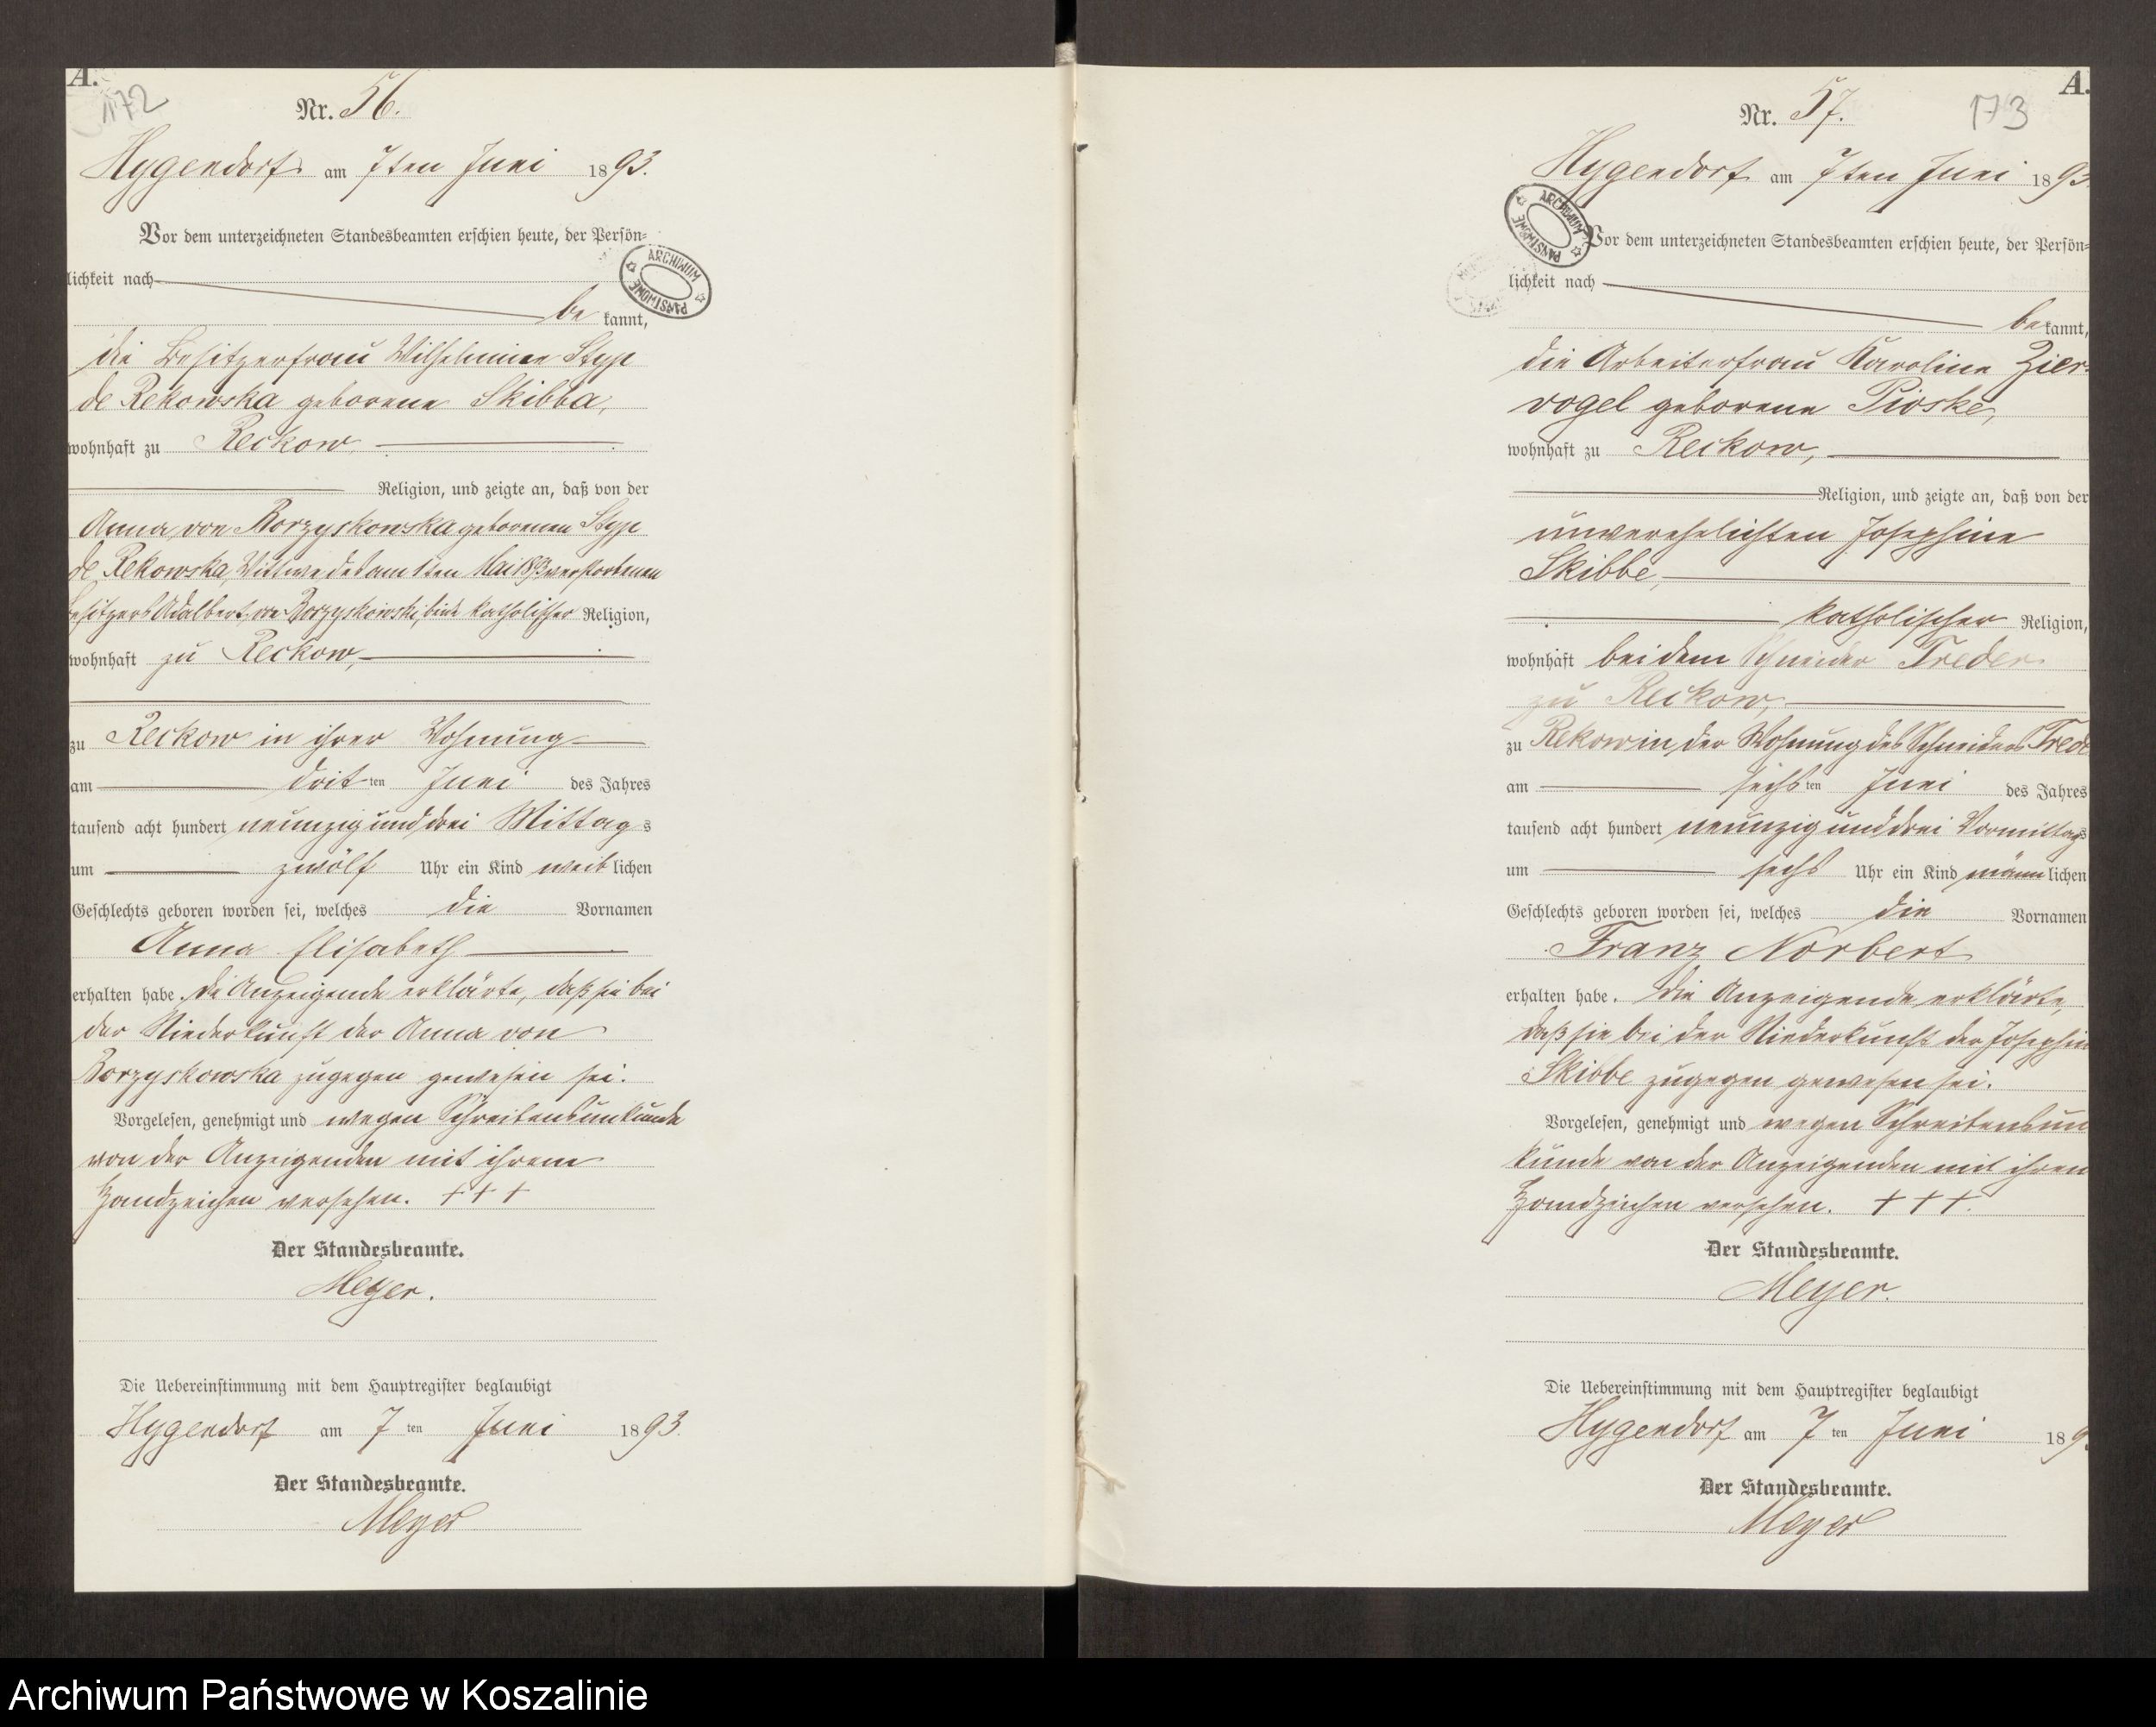 A.
172
Nr. 56.
Hygendorf am 7ten Juni 1893.
Vor dem unterzeichneten Standesbeamten erschien heute, der Persön=
lichkeit nach
be kannt,
die Besitzerfrau Wilhelmine Styp
de Rekowska geborene Skibba,
wohnhaft zu Reckow,
Religion, und zeigte an, daß von der
Anna von Borzyskowska geborenen Styp
de Rekowska, Wittwe des am 1ten Mai 1893 verstorbenen
Besitzers Adalbert von Borzyskowski, beide katholischer Religion,
wohnhaft zu Reckow,
zu Reckow in ihrer Wohnung
am dritten Juni des Jahres
tausend acht hundert neunzig und drei Mittags
um zwölf Uhr ein Kind weiblichen
Geschlechts geboren worden sei, welches die Vornamen
Anna Elisabeth
erhalten habe. Die Anzeigende erklärte, daß sie bei
der Niederkunft der Anna von
Borzyskowska zugegen gewesen sei.
Vorgelesen, genehmigt und wegen Schreibensunkunde
von der Anzeigenden mit ihrem
Handzeichen versehen. +++
Der Standesbeamte.
Meyer.
Die Uebereinstimmung mit dem Hauptregister beglaubigt
Hygendorf am 7ten Juni 1893.
Der Standesbeamte.
Meyer
ARCHIWUM PAŃSTWOWE
A.
173
Nr. 57.
Hygendorf am 7ten Juni 1893
ARCHIWUM PAŃSTWOWE
Vor dem unterzeichneten Standesbeamten erschien heute, der Persön=
lichkeit nach
bekannt,
die Arbeiterfrau Karoline Zier-
vogel geborene Pioske,
wohnhaft zu Reckow,
Religion, und zeigte an, daß von der
unverehelichten Josephine
Skibbe,
katholischer Religion,
wohnhaft bei dem Schneider Treder
zu Reckow,
zu Rekow in der Wohnung des Schneiders Trede
am sechsten Juni des Jahres
tausend acht hundert neunzig und drei Vormittags
um sechs Uhr ein Kind männlichen
Geschlechts geboren worden sei, welches die Vornamen
Franz Norbert
erhalten habe. Die Anzeigende erklärte,
daß sie bei der Niederkunft der Josephin
Skibbe zugegen gewesen sei.
Vorgelesen, genehmigt und wegen Schreibensun
kunde von der Anzeigenden mit ihrem
Handzeichen versehen. +++.
Der Standesbeamte.
Meyer.
Die Uebereinstimmung mit dem Hauptregister beglaubigt
Hygendorf am 7ten Juni 189
Der Standesbeamte.
Meyer
Archiwum Państwowe w Koszalinie